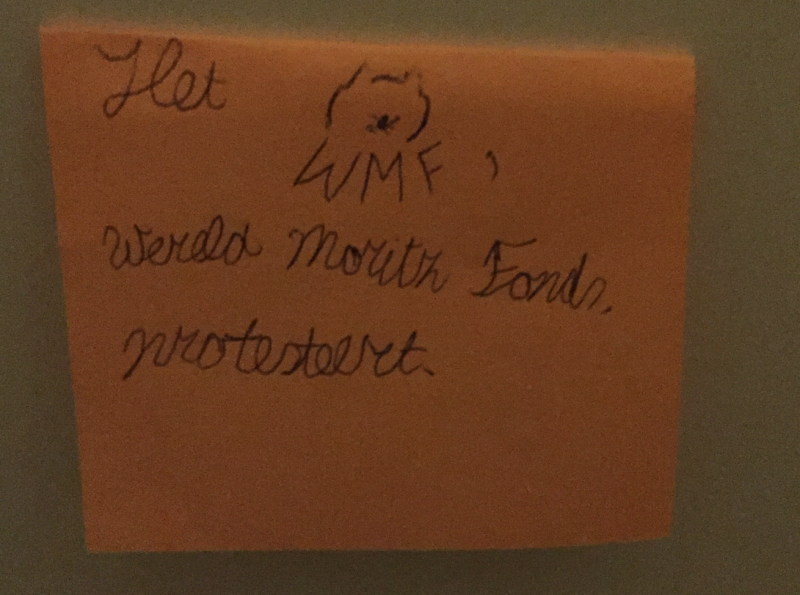 Het
WMF,
Wereld Moritz Fonds,
protesteert.